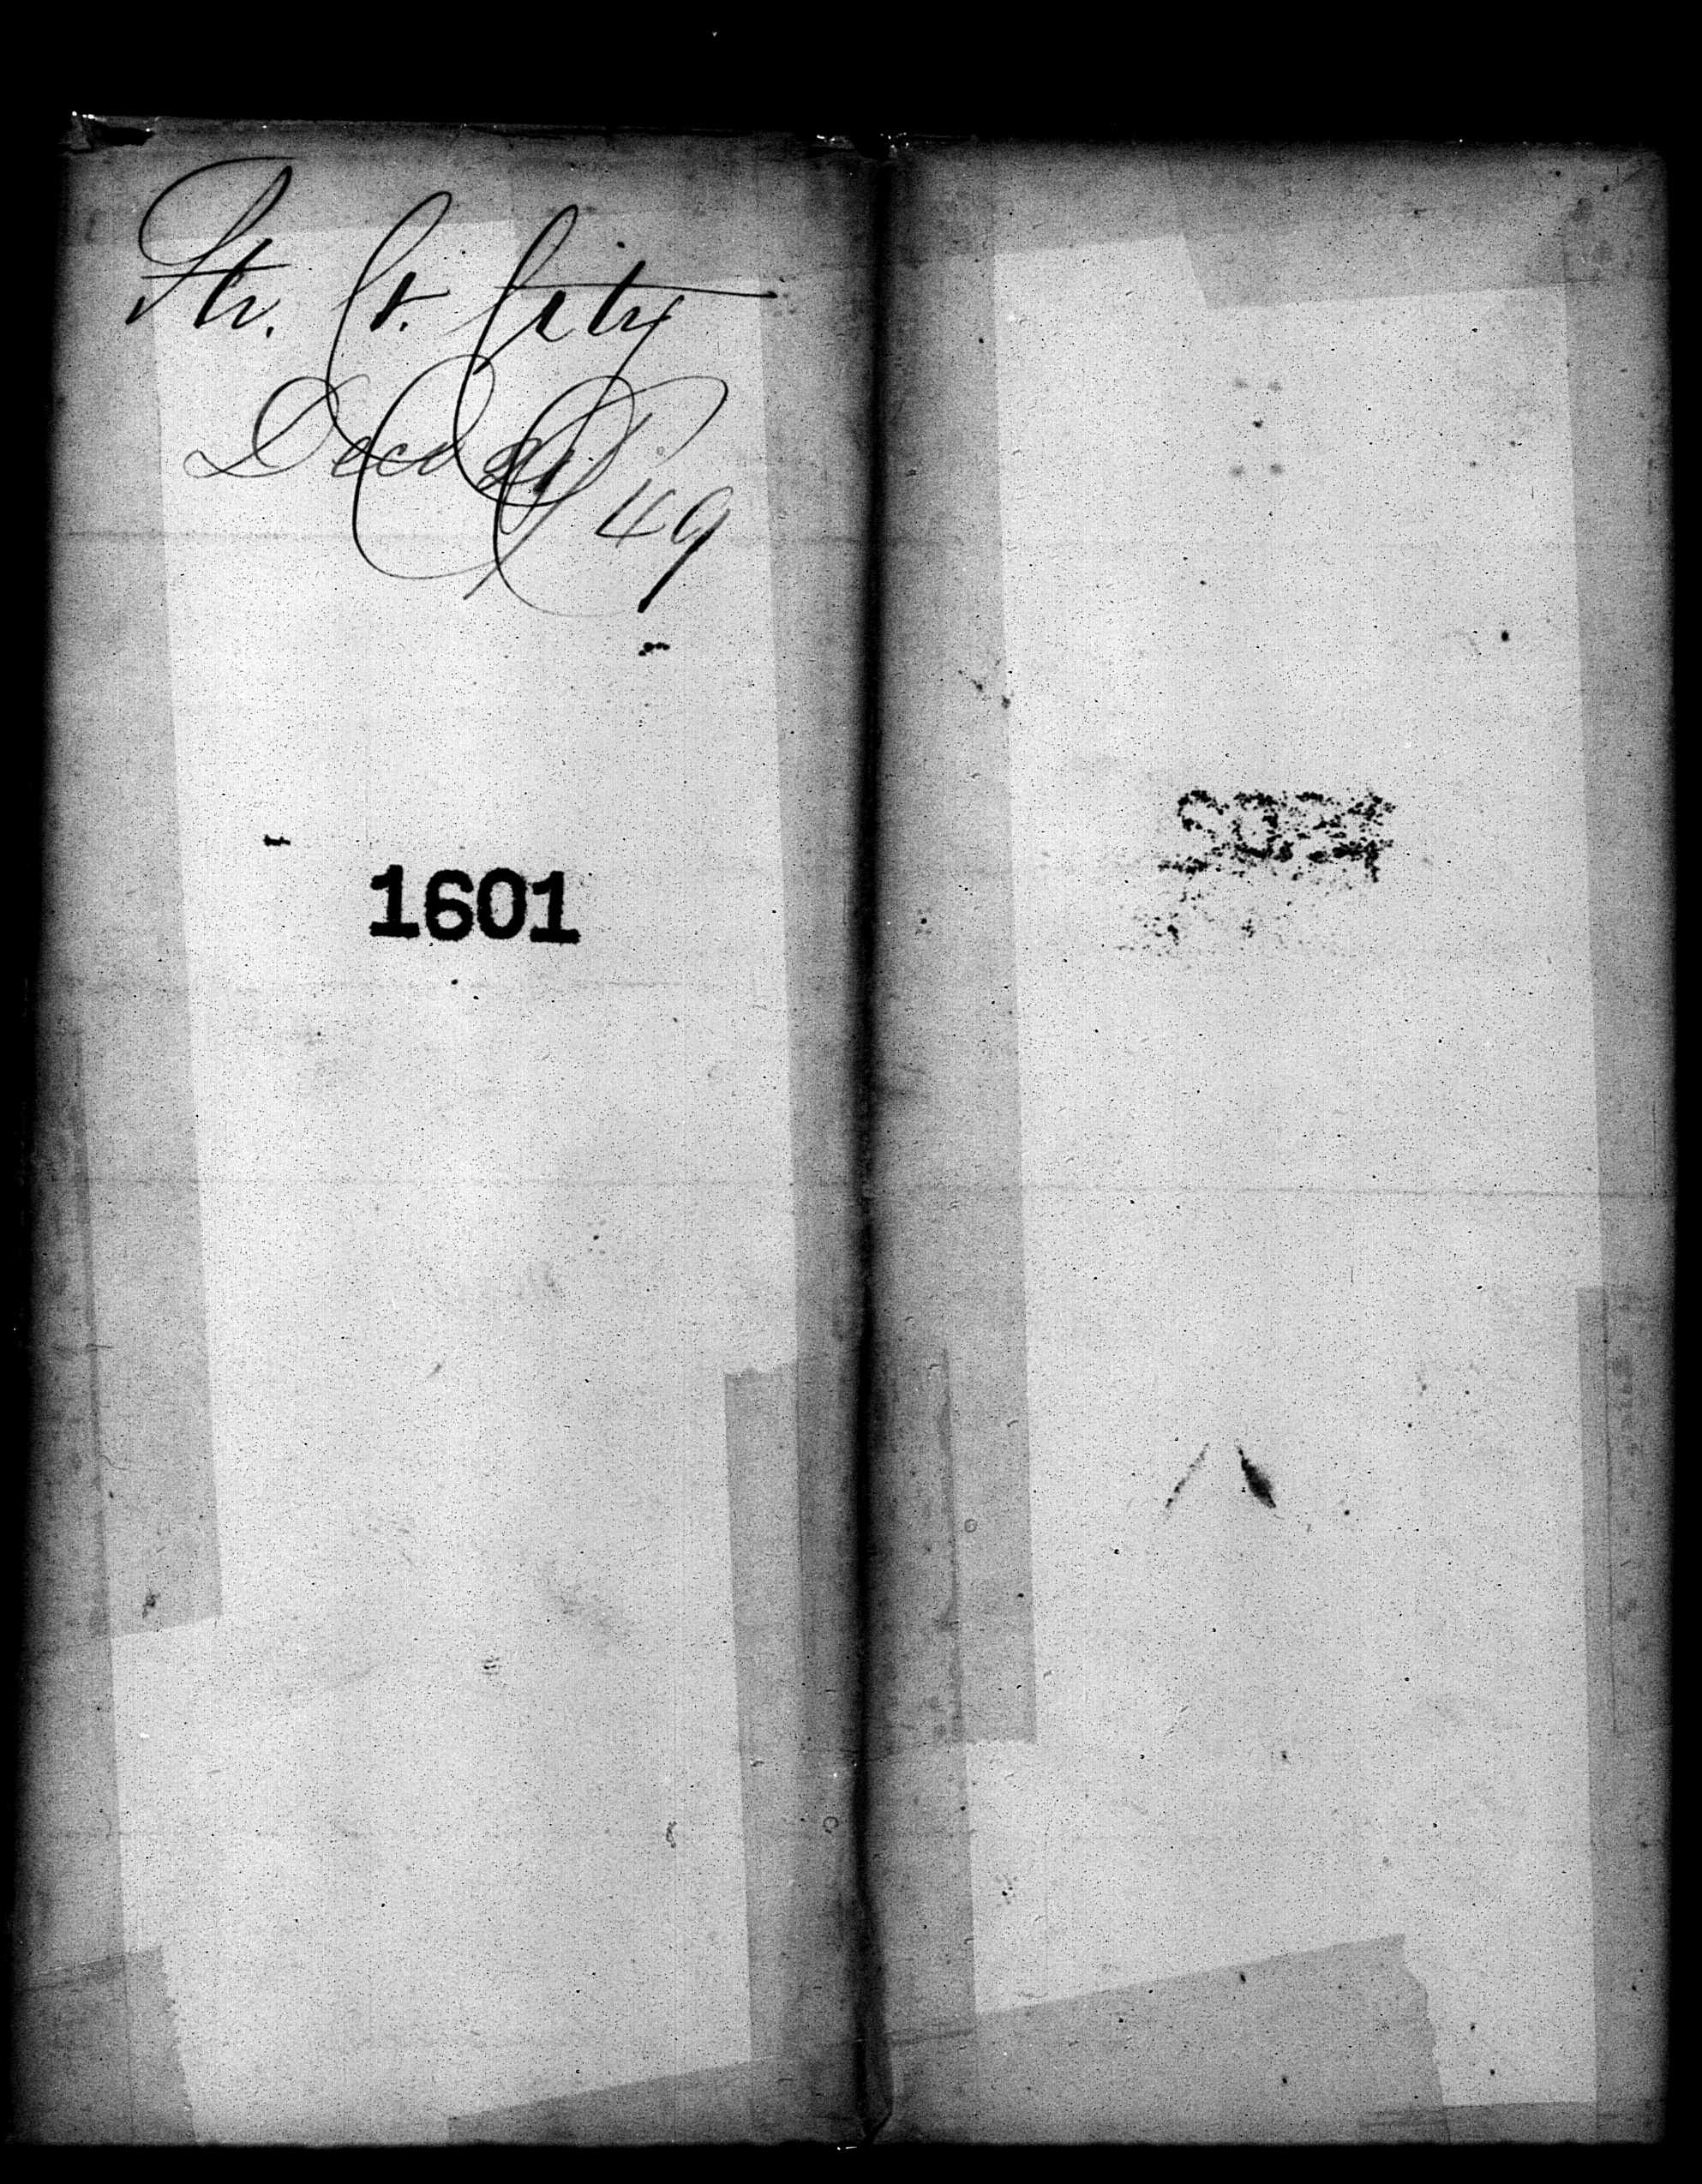 Str. Cr. City
Dec 21
49
1601